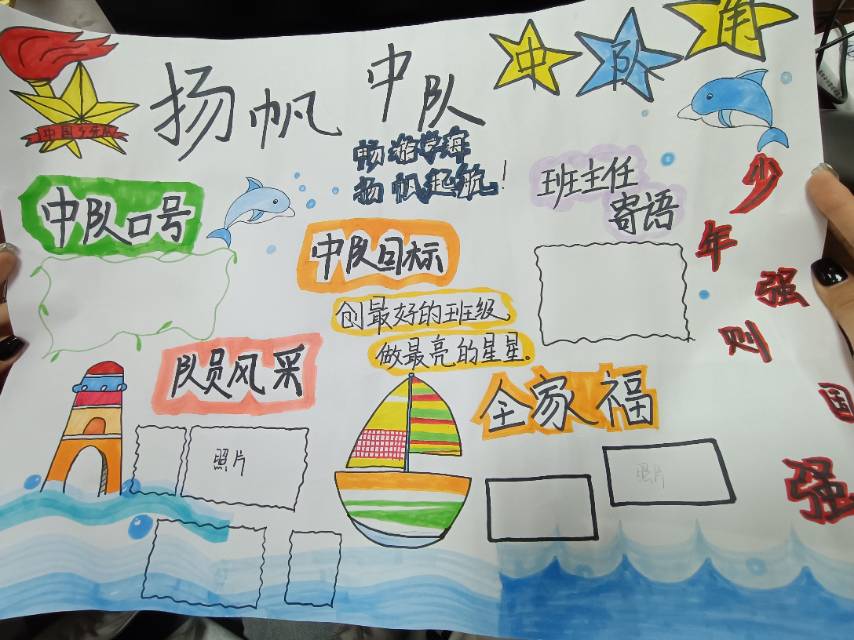 中国少年队
扬帆中队
中队角
畅游学海
扬帆起航！
班主任
寄语
少年强则国强
中队口号
中队目标
创最好的班级
做最亮的星星.
队员风采
全家福
照片
照片